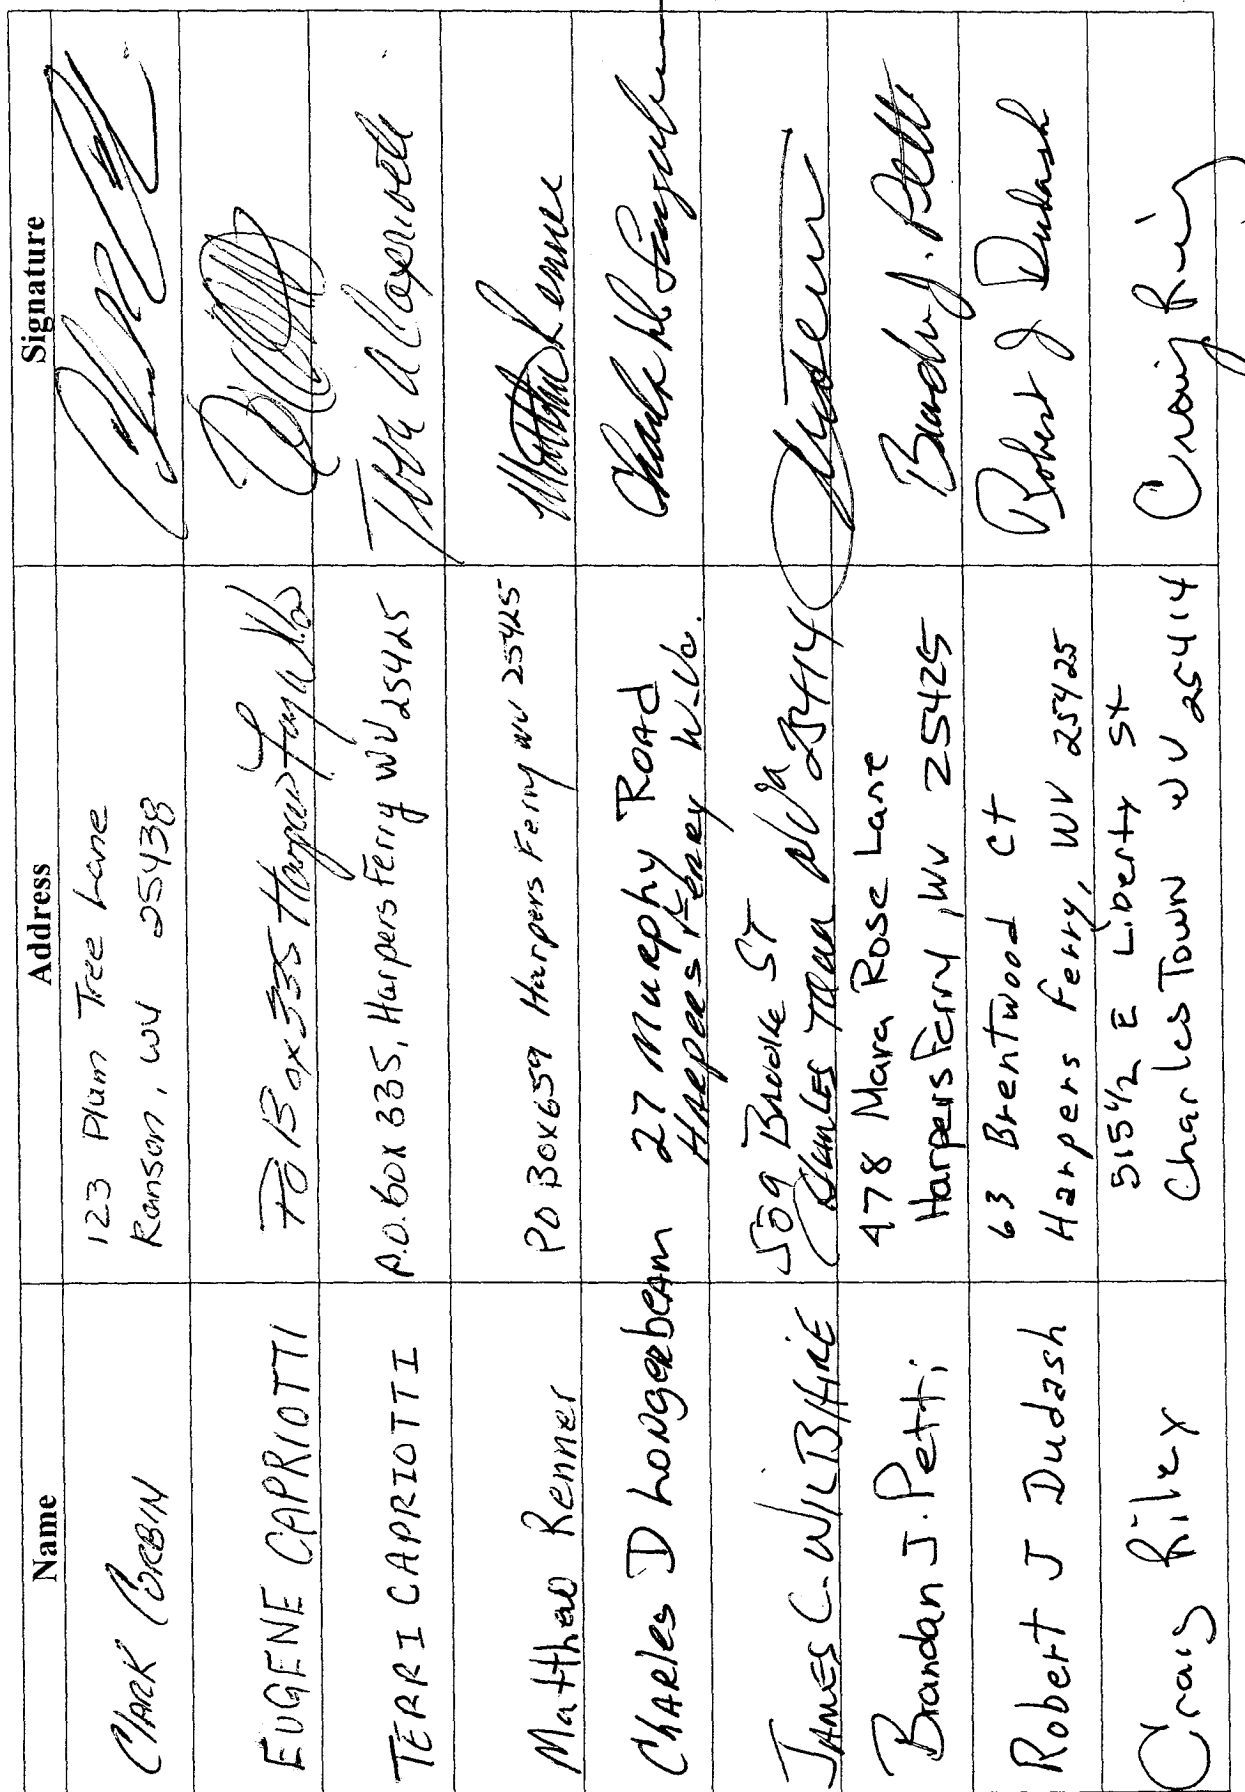 Name Address Signature
CLARK CORBIN 123 Plum Tree Lane
Ranson, WV 25438
EUGENE CAPRIOTTI PO Box 335 Harpers Ferry WVa
TERRI CAPRIOTTI P.O. box 335, Harpers Ferry WV 25425
Matthew Renner PO Box 659 Harpers Ferry WV 25425 Matthew Renner
CHARles D Longerbeam 27 Murphy Road
Harpers Ferry W-Va.
JAMES C. WILBHIRE 509 Brooke ST
Charles Town WVa 25414
Brandan J. Petti 478 Mara Rose Lane
Harpers Ferry, WV 25425
Robert J Dudash 63 Brentwood Ct Robert J Dudash
Harpers Ferry, WV 25425
Craig Riley 515 1/2 E Liberty St
Charles Town WV 25414